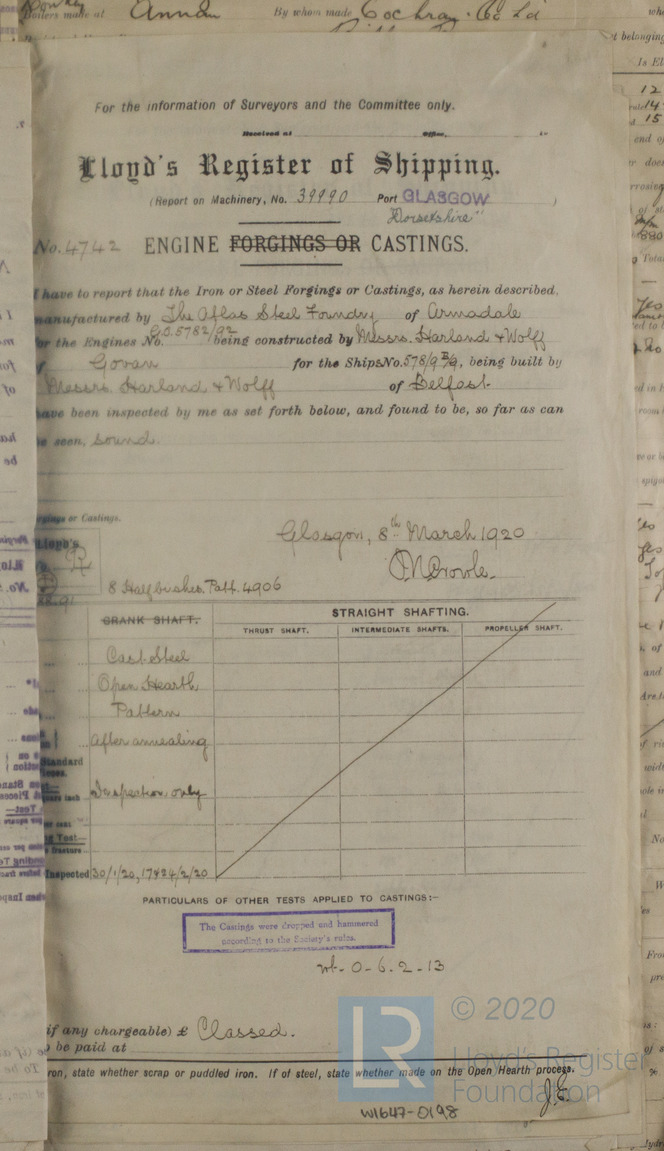 Boilers made at Annan By whom made Cochran & Co Ld
For the information of Surveyors and the Committee only.
Received at Office,
Lloyd's Register of Shipping.
(Report on Machinery, No. 39990 Port GLASGOW )
"Dorsetshire"
No. 4742 ENGINE FORGINGS OR CASTINGS.
I have to report that the Iron or Steel Forgings or Castings, as herein described,
manufactured by The Atlas Steel Foundry of Armadale
for the Engines No. G.O. 5782/92 being constructed by Messrs. Harland & Wolff
of Govan for the Ships No. 578/9 being built by
Messrs Harland & Wolff of Belfast.
have been inspected by me as set forth below, and found to be, so far as can
be seen, sound.
Forgings or Castings.
Glasgow, 8th March 1920
Lloyd's
8 Half bushes. Patt. 4906
CRANK SHAFT. STRAIGHT SHAFTING.
THRUST SHAFT. INTERMEDIATE SHAFTS. PROPELLER SHAFT.
Cast Steel
Open Hearth
Pattern
After annealing
Standard
Inspection only
Test—
fracture
Inspected 30/1/20, 17 & 24/2/20
PARTICULARS OF OTHER TESTS APPLIED TO CASTINGS:–
The Castings were dropped and hammered
according to the Society's rules.
wt- 0-6-2-13
if any chargeable) £ Classed.
to be paid at
iron, state whether scrap or puddled iron. If of steel, state whether made on the Open Hearth process.
© 2020
LR Lloyd's Register
Foundation
W1647-0198